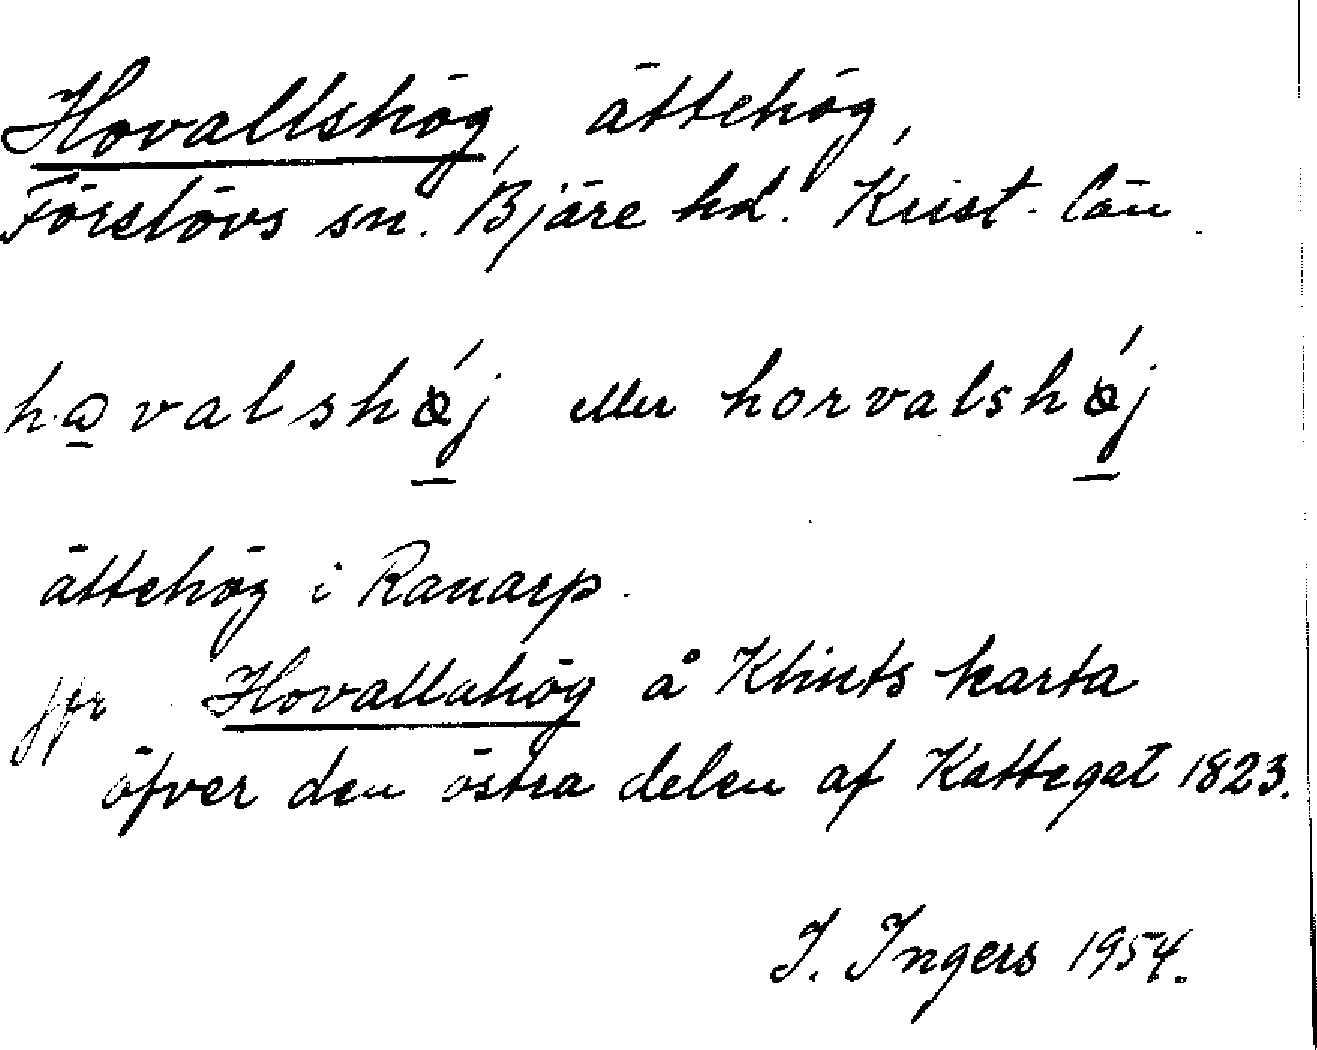 Hovallshög, ättehög,
Förslövs sn. Bjäre hd. Krist. län.
hovalshǿj eller horvalshǿj
ättehög i Ranarp.
jfr Hovallahög å Klints karta
öfver den östra delen af Kattegat 1823.
I. Ingers 1954.